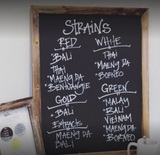 STRAINS
RED
BALI
THAI
MAENG DA
BENTUANGIE
GOLD
BALI
EXTRACTS
MAENG DA
BALI
WHITE
THAI
MAENG DA
BORNEO
GREEN
MALAY
BALI
VIETNAM
MAENG DA
BORNEO